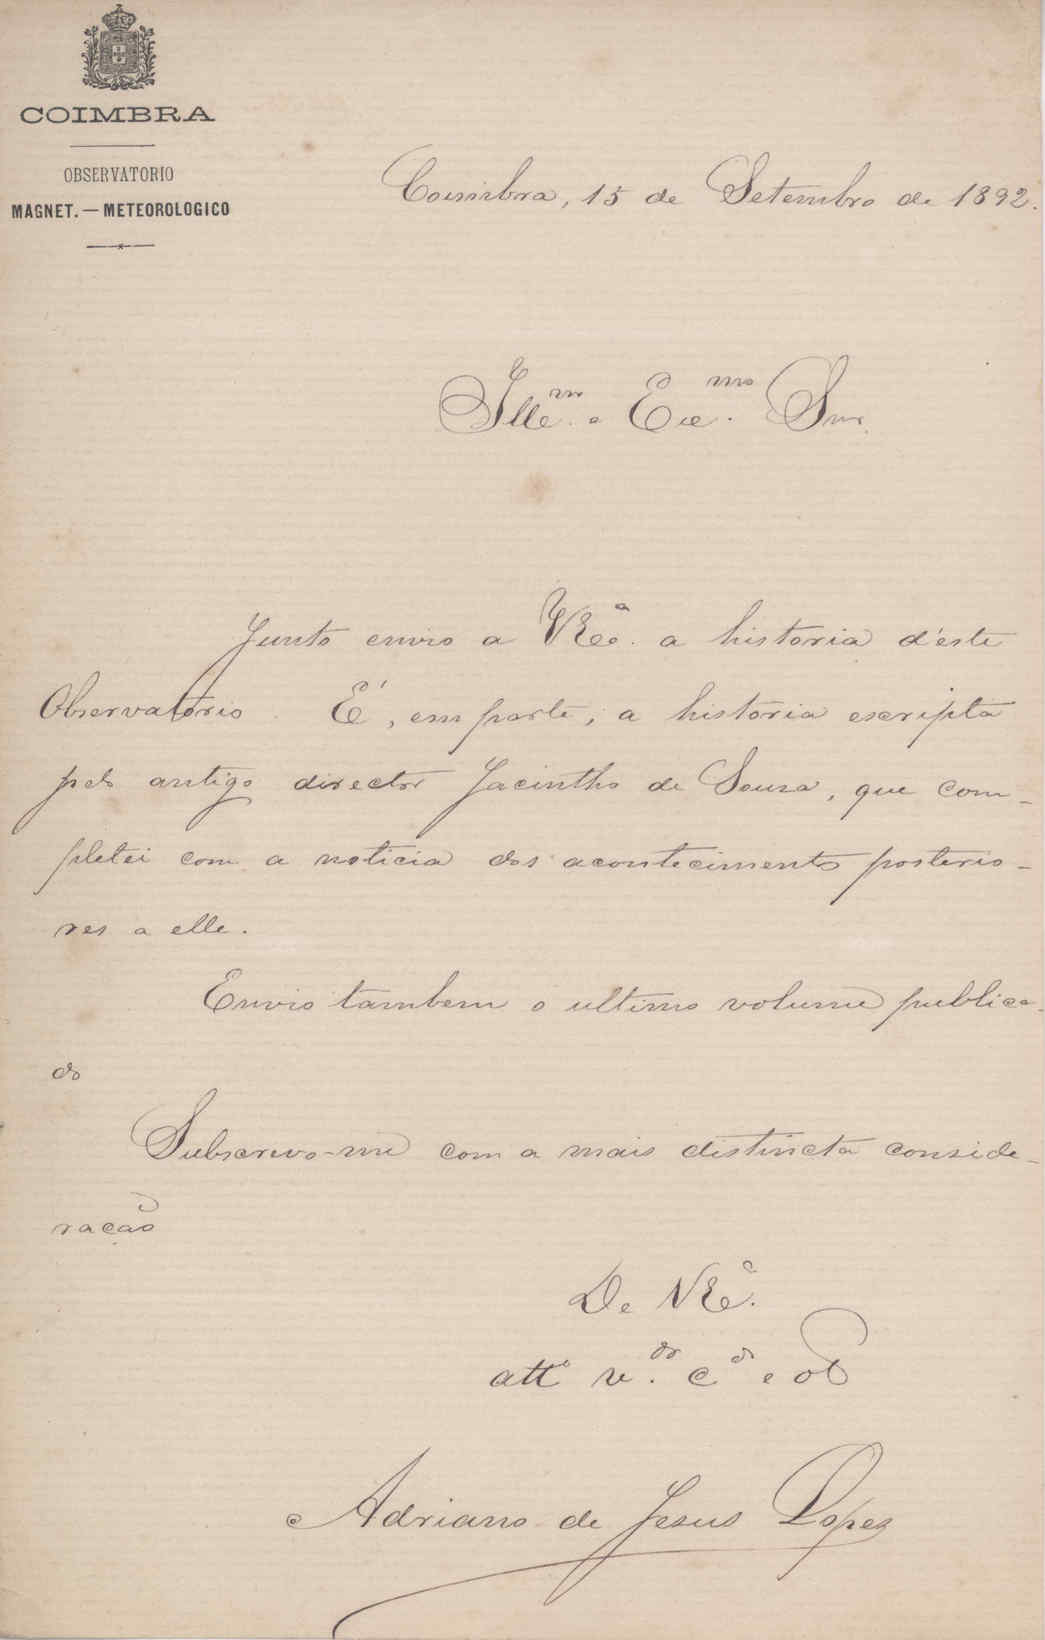 COIMBRA
OBSERVATORIO
MAGNET. — METEOROLOGICO
Coimbra, 15 de Setembro de 1892.
Illmo. e Exmo. Snr.
Junto envio a VExa. a historia d'este
Observatorio. É, em parte, a historia escripta
pelo antigo director Jacintho de Souza, que com-
pletei com a noticia dos acontecimentos posterio-
res a elle.
Envio tambem o ultimo volume publica-
do
Subscrevo-me com a mais distincta conside-
ração
De VEa.
atto vdor. cdo e ob
Adriano de Jesus Lopes